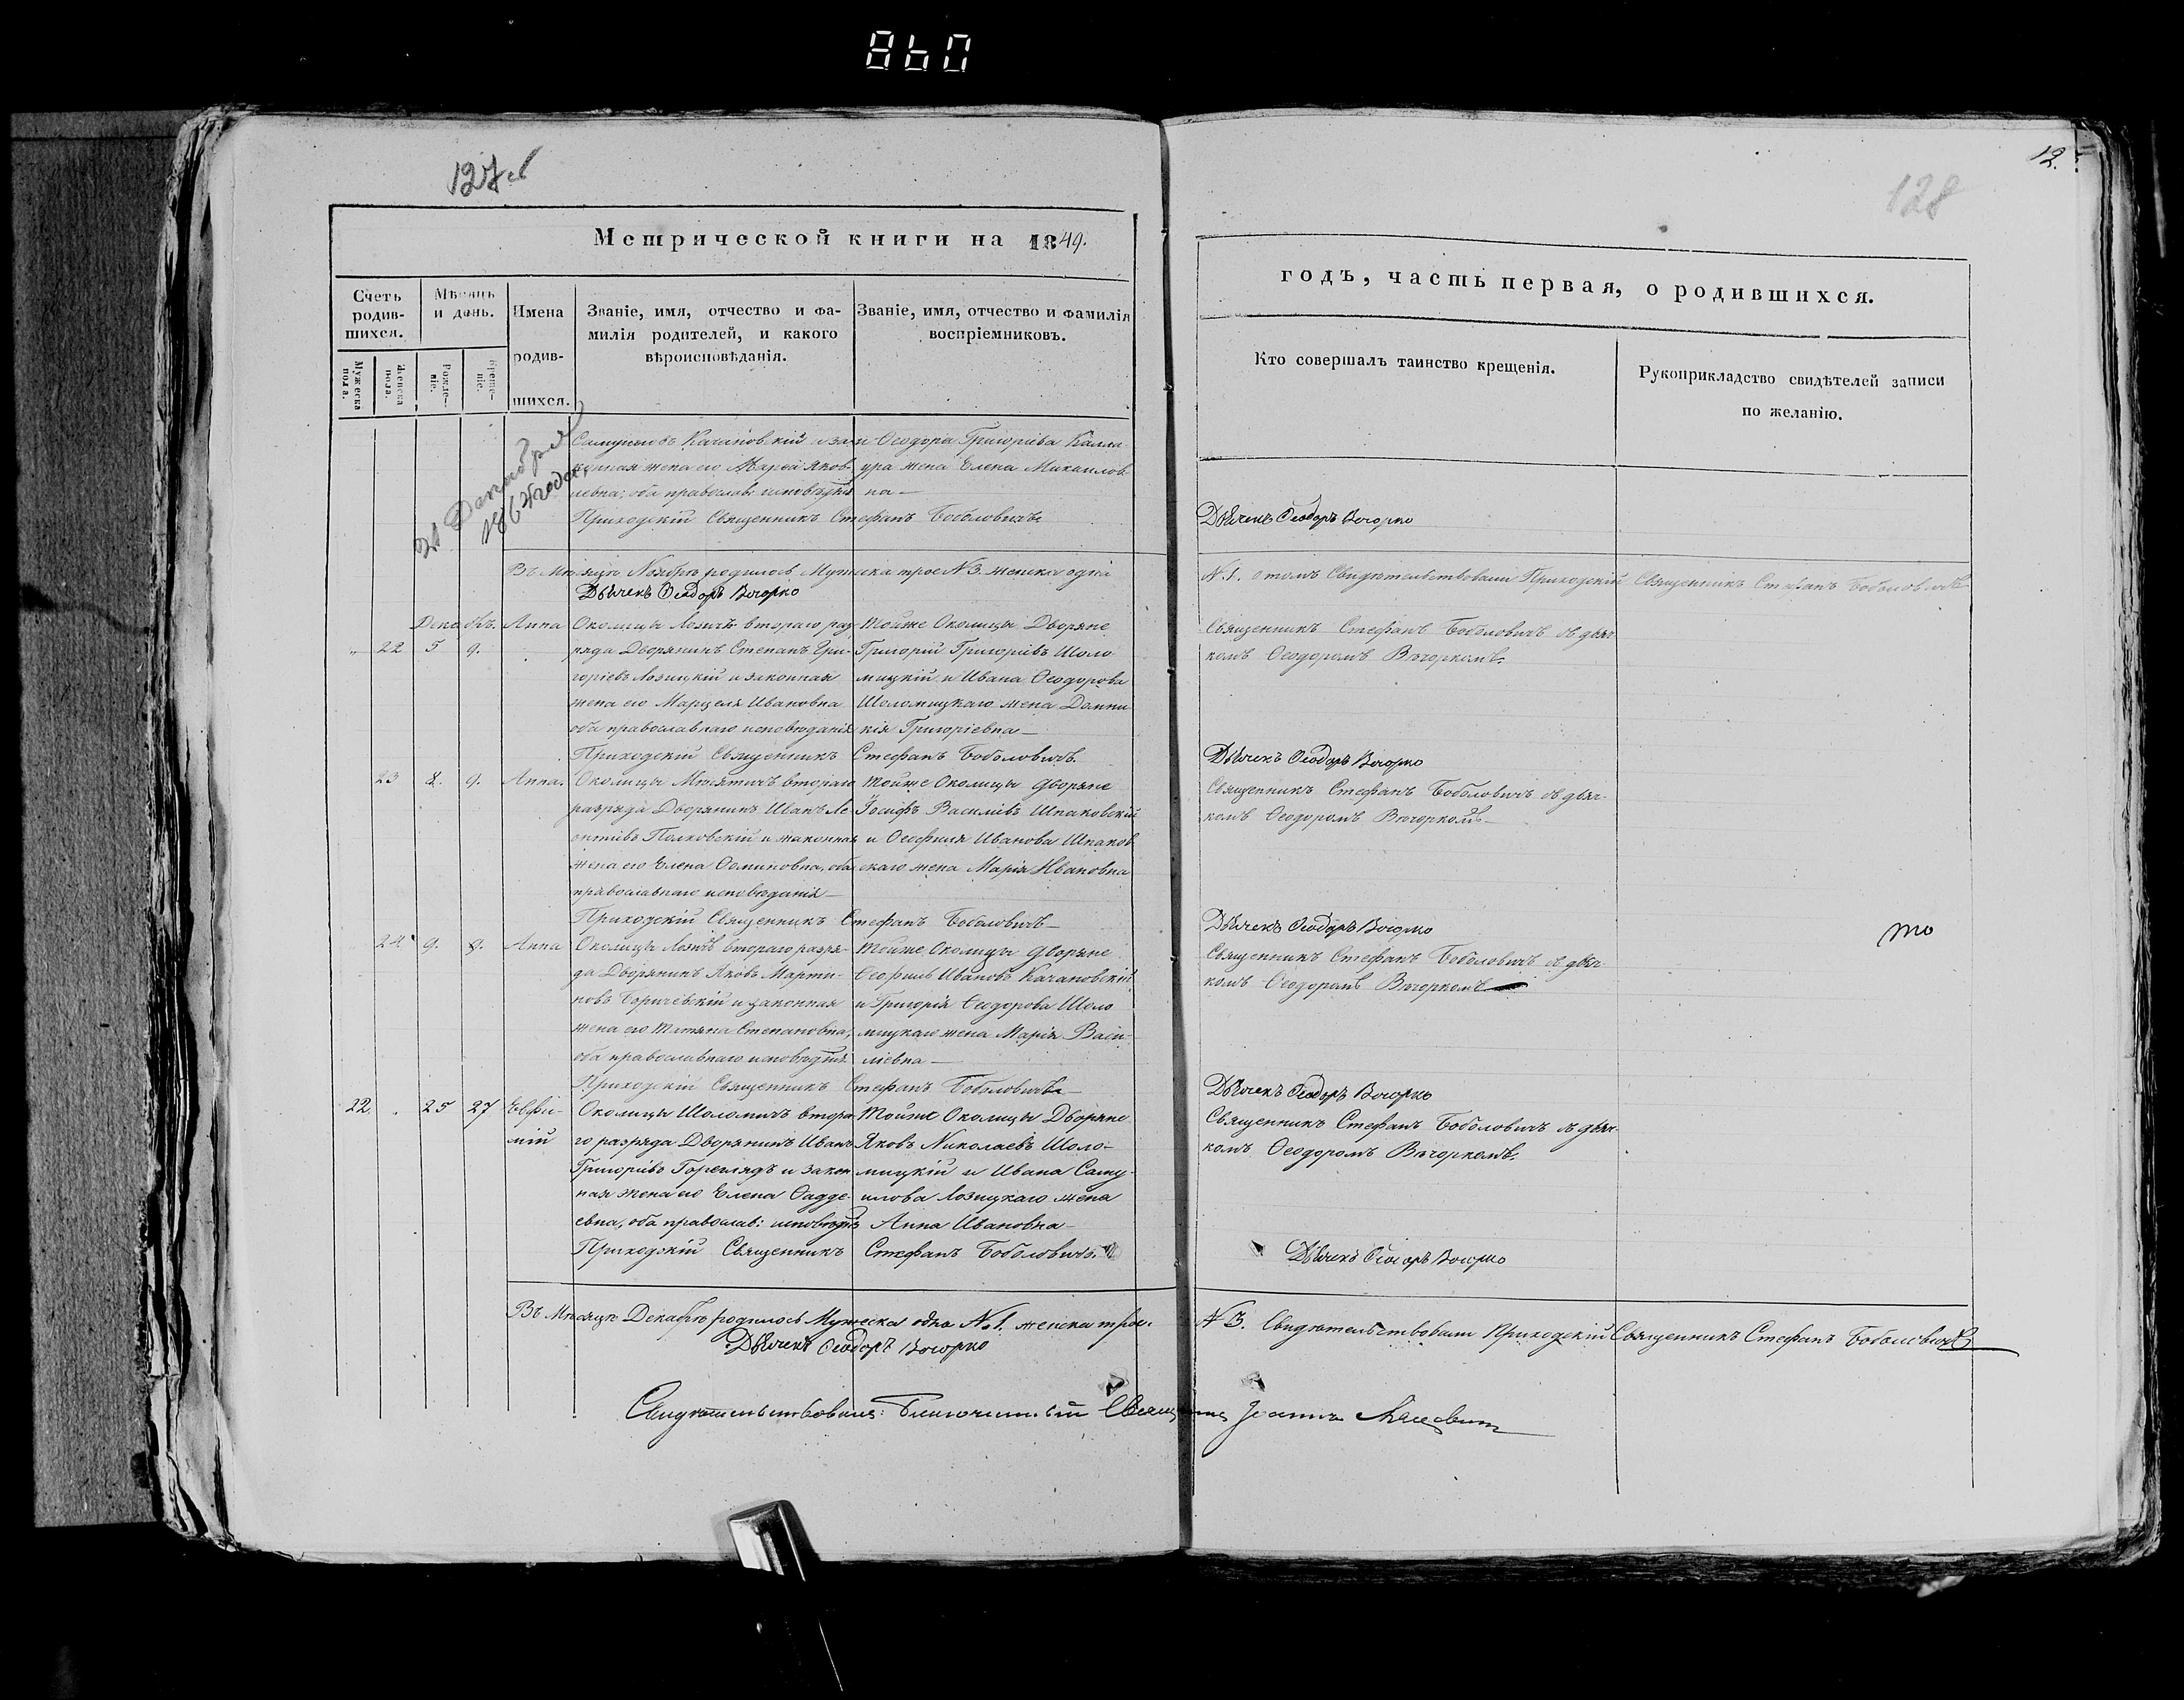 860
127 об
128
12.
Метрической книги на 1849.
годъ, часть первая, о родившихся.
Счетъ родив-шихся.
Мѣсяцъ и день.
Имена родив-шихся.
Званіе, имя, отчество и фа-
милія родителей, и какого
вѣроисповѣданія.
Званіе, имя, отчество и фамилія
воспріемниковъ.
Мужеска пола.
Женска пола.
Рожде-ніе.
Креще-ніе.
Кто совершалъ таинство крещенія.
Рукоприкладство свидѣтелей записи
по желанію.
21 Декабря
1864 года
Качановскій и зако
и Ѳеодора Григоріева
жена его Марѳа Яков-
жена Елена Михаилов-
левна; оба православ:
на —
Приходскій Священникъ Стефанъ Боболовичъ
Дьячекъ Ѳеодоръ Вечорко
Въ Мѣсяцѣ Ноябрѣ родилось Мужеска трое №3. женска одна
№1. о томъ Свидѣтельствовали Приходскій Священникъ Стефанъ Боболовичъ
Дьячекъ Ѳеодоръ Вечорко
Декабрь.
22 5 9.
Анна
Околицы Лозичъ втораго раз-
ряда Дворянинъ Степанъ Гри-
горіевъ Лозицкій и законная
жена его Марцеля Ивановна
оба православнаго исповѣданія
Тойже Околицы Дворяне
Григорій Григоріевъ Шоло
мицкій и Ивана Ѳеодорова
Шоломицкаго жена Домни
кія Григоріевна —
Священникъ Стефанъ Боболовичъ съ дьяч-
комъ Ѳеодоромъ Вечоркомъ.
Приходскій Священникъ Стефанъ Боболовичъ.
Дьячекъ Ѳеодоръ Вечорко
23 8. 9.
Анна.
Околицы Мнсятичъ втораго
разряда Дворянинъ Иванъ Ле-
онтіевъ Полховскій и законная
жена его Елена Осиповна, оба
православнаго исповѣданія —
Тойже Околицы Дворяне
Іосифъ Василіевъ Шпаковскій
и Ѳеофиля Иванова Шпаков-
скаго жена Марія Ивановна
Священникъ Стефанъ Боболовичъ съ дьяч-
комъ Ѳеодоромъ Вечоркомъ —
Приходскій Священникъ Стефанъ Боболовичъ —
Дьячекъ Ѳеодоръ Вечорко
24 9. 9.
Анна
Околицы Лозичъ втораго разря-
да Дворянинъ Яковъ Марти-
новъ Боричевскій и законная
жена его Татяна Степановна,
оба православнаго исповѣднія
Тойже Околицы Дворяне
Ѳеофиль Ивановъ Качановскій
и Григорія Ѳеодорова Шоло
мицкаго жена Марія Васи-
ліевна —
Священникъ Стефанъ Боболовичъ съ дьяч-
комъ Ѳеодоромъ Вечоркомъ
то
Приходскій Священникъ Стефанъ Боболовичъ
Дьячекъ Ѳеодоръ Вечорко
22. 25 27
Евфи-
мій
Околицы Шоломичъ втора-
го разряда Дворянинъ Иванъ
Григоріевъ Гореглядъ и закон-
ная жена его Елена Ѳадде-
евна, оба православ: исповѣднія
Тойже Околицы Дворяне
Яковъ Николаевъ Шоло-
мицкій и Ивана Саму-
илова Лозицкаго жена
Анна Ивановна —
Священникъ Стефанъ Боболовичъ съ дьяч-
комъ Ѳеодоромъ Вечоркомъ.
Приходскій Священникъ Стефанъ Боболовичъ.
Дьячекъ Ѳеодоръ Вечорко
Въ Мѣсяцѣ Декабрѣ родилось Мужеска одно №1. женска трое.
№3. Свидѣтельствовали Приходскій Священникъ Стефанъ Боболовичъ
Дьячекъ Ѳеодоръ Вечорко
Свидѣтельствовалъ: Благочинный Священникъ Іоаннъ